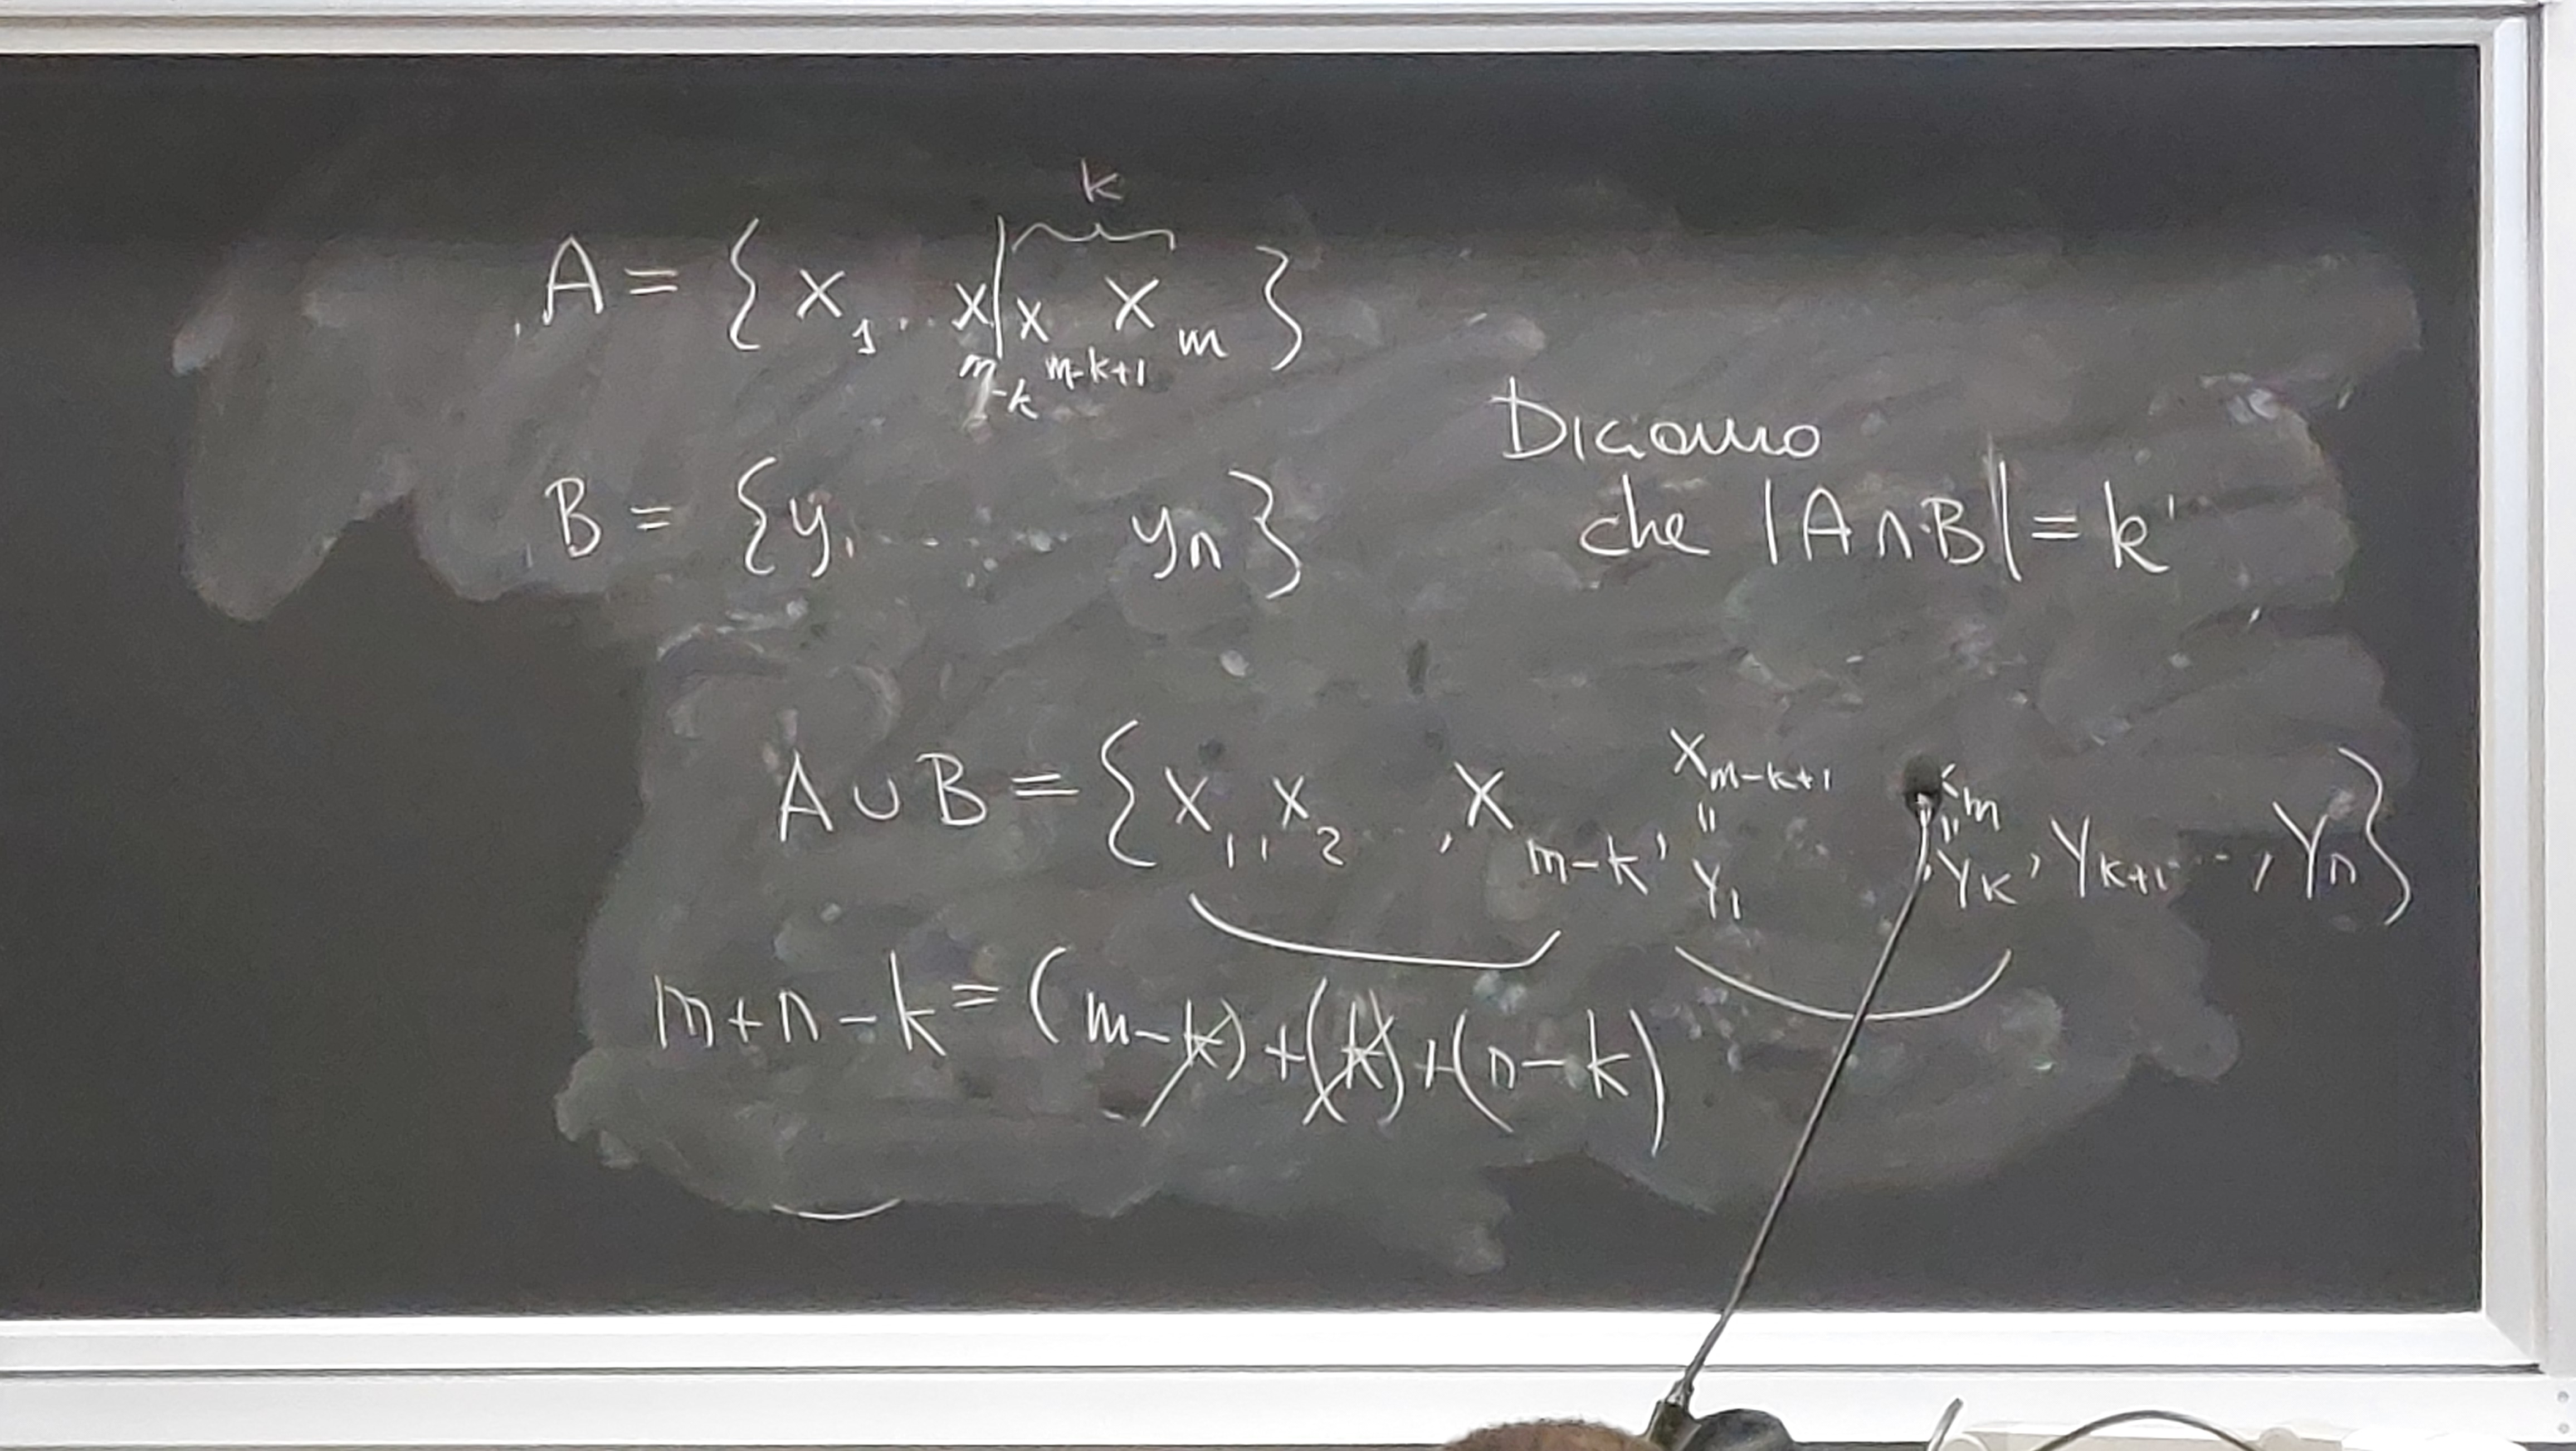 k
A = { x₁ .. x_{m-k} | x_{m-k+1} x_m }
B = { y₁ ..... y_n }
Diciamo
che |A∩B| = k
A∪B = { x₁, x₂ ..., x_{m-k}, x_{m-k+1} = y₁ x_m = y_k, y_{k+1} ..., y_n }
m+n-k = (m-k)+(k)+(n-k)